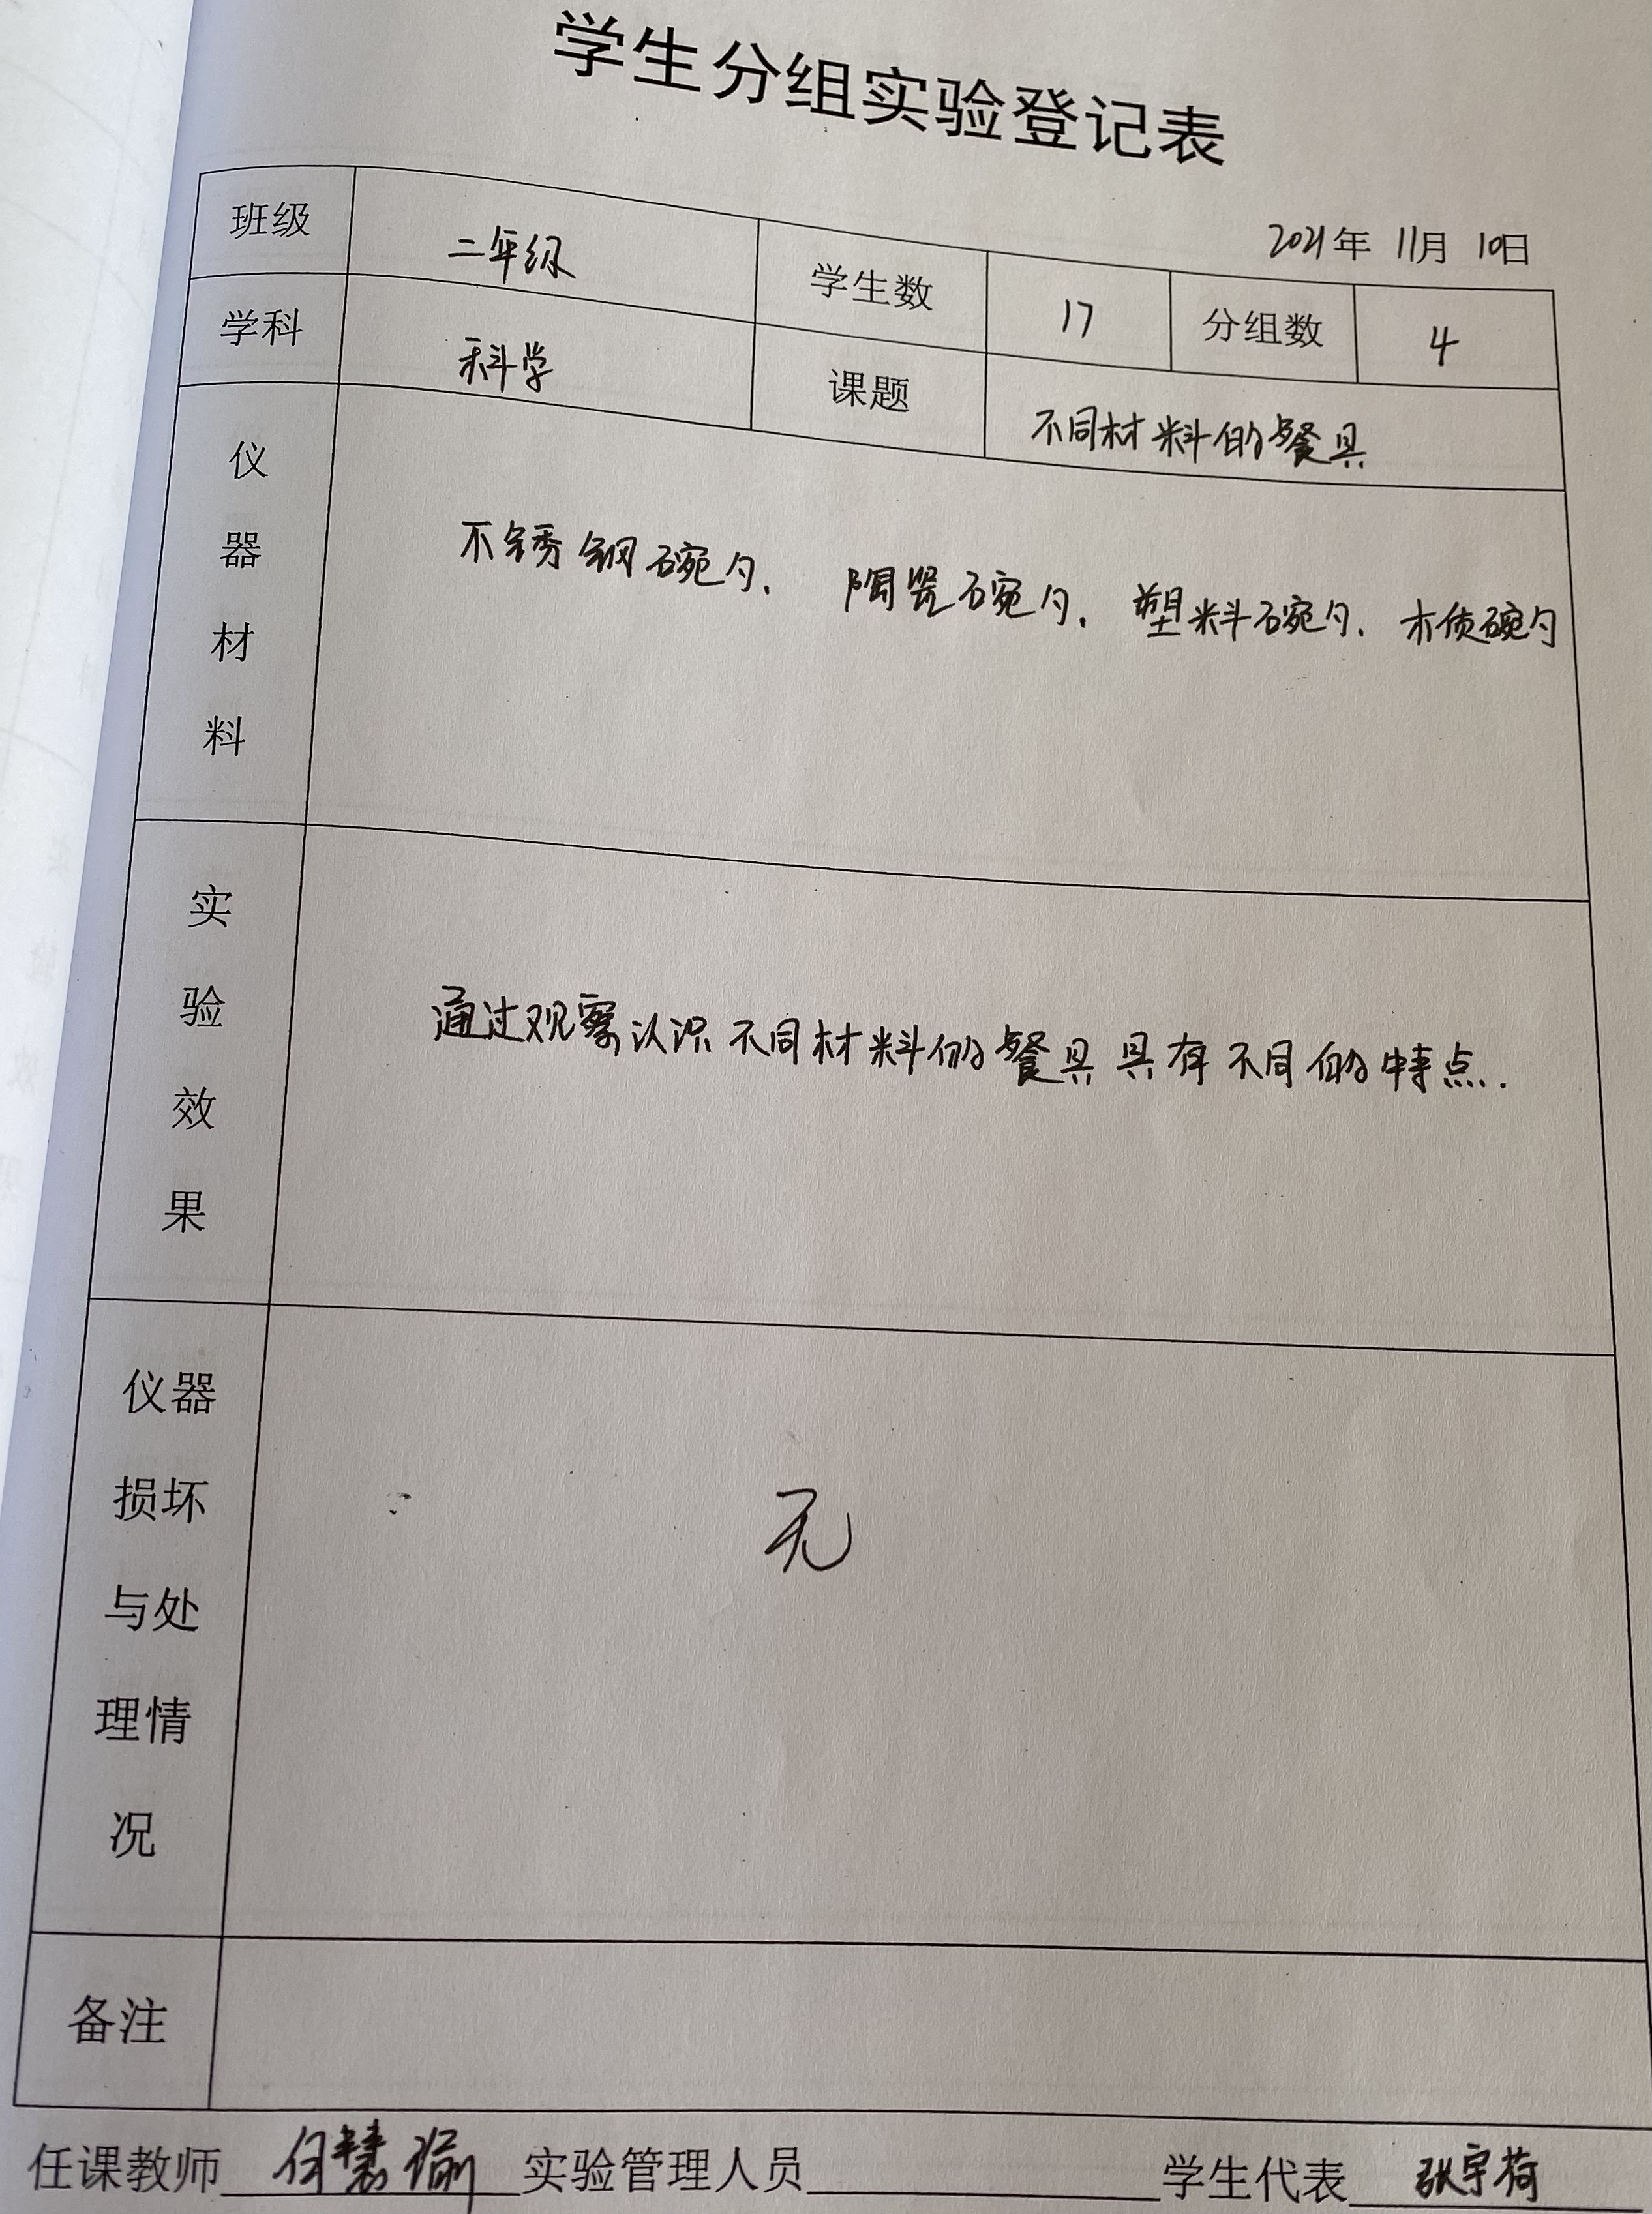 学生分组实验登记表
2021年 11月 10日
班级 二年级 学生数 17 分组数 4
学科 科学 课题 不同材料的餐具
仪器材料 不锈钢碗勺、陶瓷碗勺、塑料碗勺、木质碗勺
实验效果 通过观察认识不同材料的餐具具有不同的特点.
仪器
损坏
与处
理情
况
无
备注
任课教师 何慧瑜 实验管理人员 学生代表 张宇荷